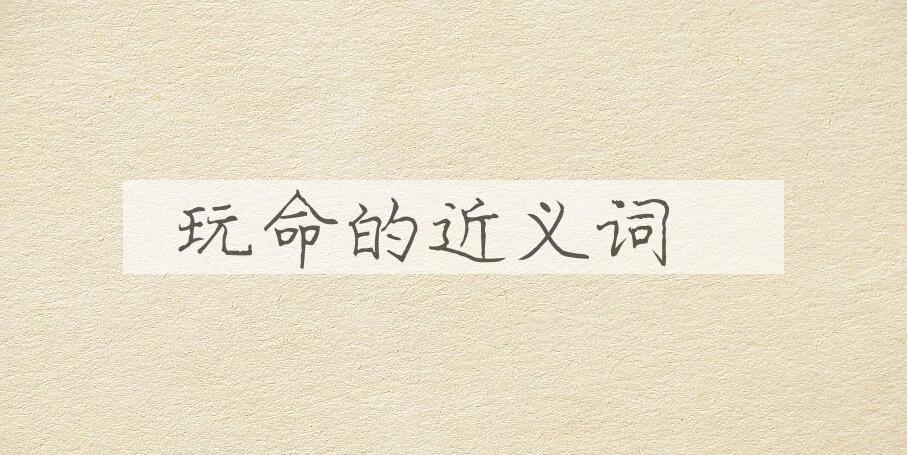 玩命的近义词